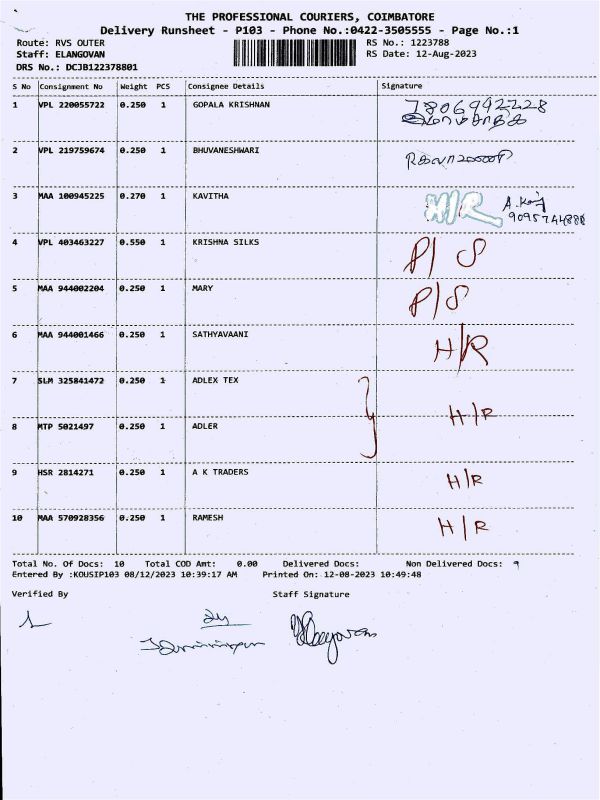 THE PROFESSIONAL COURIERS, COIMBATORE
Delivery Runsheet - P103 - Phone No.:0422-3505555 - Page No.:1
Route: RVS OUTER RS No.: 1223788
Staff: ELANGOVAN RS Date: 12-Aug-2023
DRS No.: DCJB122378801
S No Consignment No Weight PCS Consignee Details Signature
1 VPL 220055722 0.250 1 GOPALA KRISHNAN 7806992228
2 VPL 219759674 0.250 1 BHUVANESHWARI
3 MAA 100945225 0.270 1 KAVITHA H/R
9095744888
4 VPL 403463227 0.550 1 KRISHNA SILKS P/S
5 MAA 944002204 0.250 1 MARY P/S
6 MAA 944001466 0.250 1 SATHYAVAANI H/R
7 SLM 325841472 0.250 1 ADLEX TEX
H/R
8 MTP 5021497 0.250 1 ADLER
9 HSR 2814271 0.250 1 A K TRADERS H/R
10 MAA 570928356 0.250 1 RAMESH H/R
Total No. Of Docs: 10 Total COD Amt: 0.00 Delivered Docs: Non Delivered Docs: 9
Entered By :KOUSIP103 08/12/2023 10:39:17 AM Printed On: 12-08-2023 10:49:48
Verified By Staff Signature